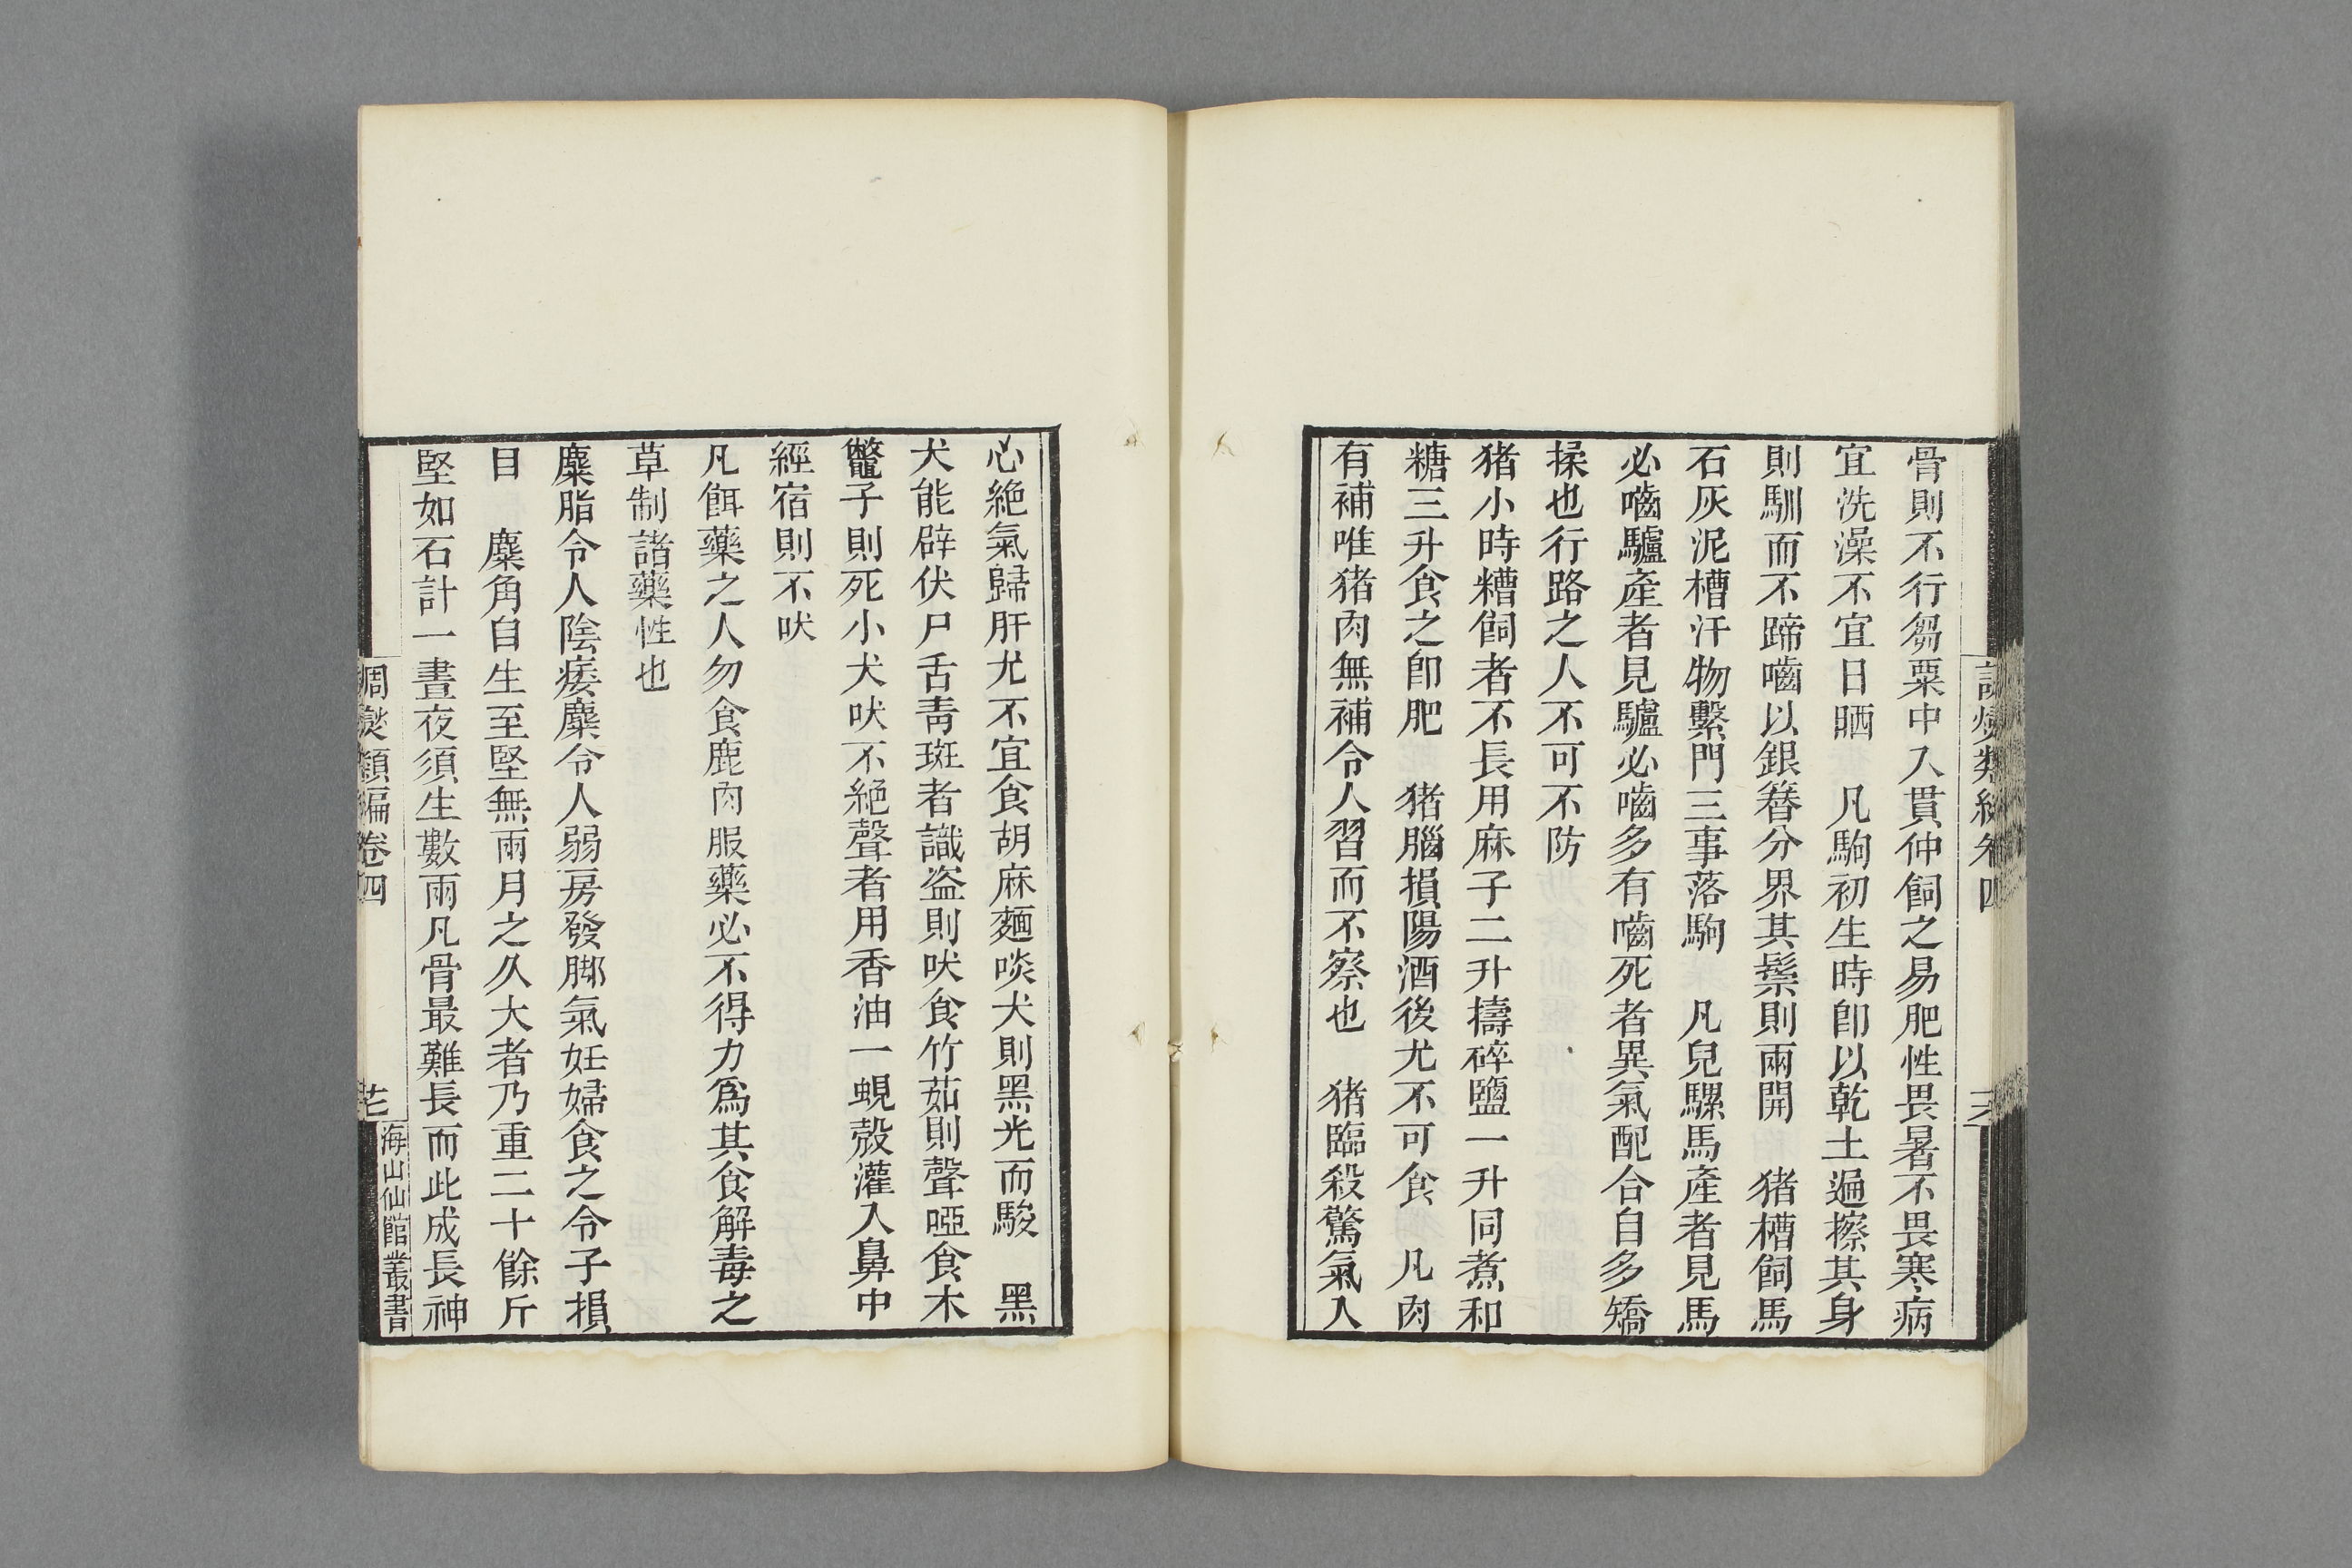 骨則不行芻粟中入貫仲飼之易肥性畏暑不畏寒病
宜洗澡不宜日晒　凡駒初生時卽以乾土遍擦其身
則馴而不蹄嚙以銀簪分界其鬃則兩開　猪槽飼馬
石灰泥槽汗物繫門三事落駒　凡兒騾馬產者見馬
必嚙驢產者見驢必嚙多有嚙死者異氣配合自多矯
揉也行路之人不可不防
猪小時糟飼者不長用麻子二升擣碎鹽一升同煮和
糖三升食之卽肥　猪腦損陽酒後尤不可食　凡肉
有補唯猪肉無補令人習而不察也　猪臨殺驚氣入
心絶氣歸肝尤不宜食胡麻麵啖犬則黑光而駿　黑
犬能辟伏尸舌靑斑者識盜則吠食竹茹則聲啞食木
鼈子則死小犬吠不絶聲者用香油一蜆殼灌入鼻中
經宿則不吠
凡餌藥之人勿食鹿肉服藥必不得力爲其食解毒之
草制諸藥性也
麋脂令人陰痿麋令人弱房發脚氣妊婦食之令子損
目　麋角自生至堅無兩月之久大者乃重二十餘斤
堅如石計一晝夜須生數兩凡骨最難長而此成長神
調燮類編卷四
海山仙館叢書